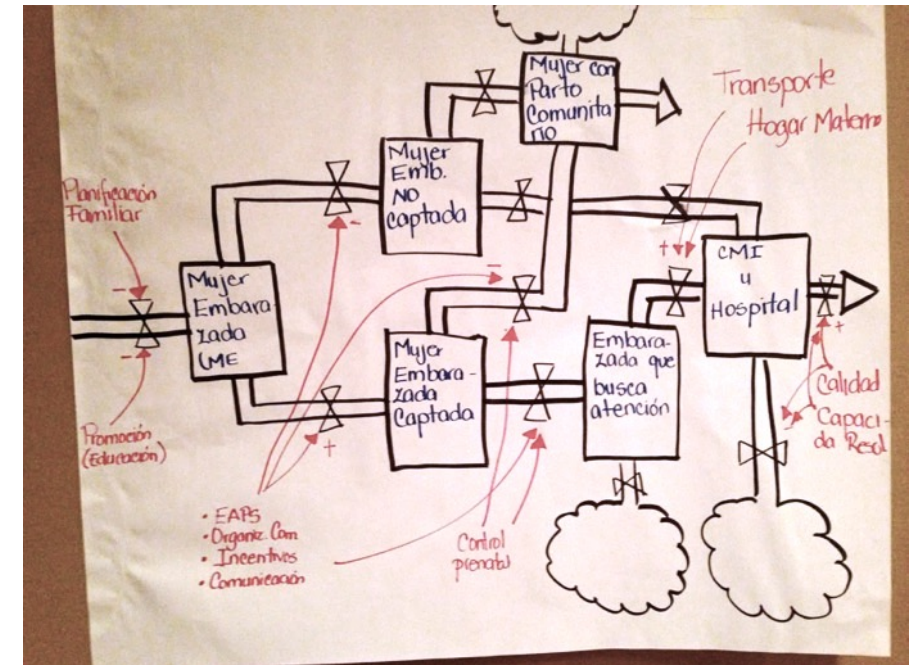 Mujer con
Parto
Comunita
rio
Transporte
Hogar Materno
Mujer
Emb.
NO
Captada
Planificación
Familiar
-
-
+
-
Mujer
Embara-
zada
CMI
u
Hospital
-
-
+
Mujer
Embara-
zada
Captada
Embara-
zada que
busca
atención
Calidad
Capaci-
da Resol
-
Promoción
(Educación)
+
• EAPS
• Organiz. Com
• Incentivos
• Comunicación
Control
prenatal